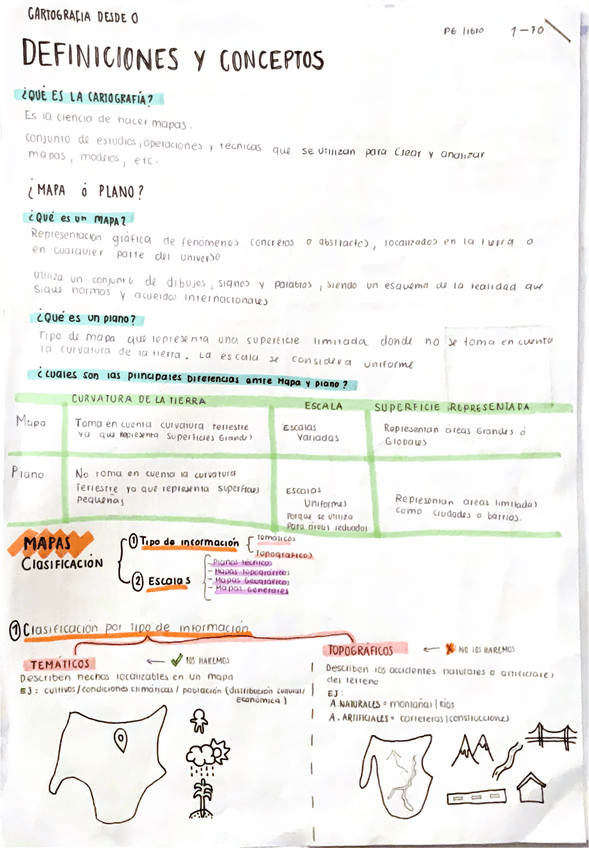 CARTOGRAFIA DESDE 0
PG libro 1-70
DEFINICIONES Y CONCEPTOS
¿QUÉ ES LA CARTOGRAFÍA?
Es la ciencia de hacer mapas.
Conjunto de estudios, operaciones y técnicas que se utilizan para crear y analizar
mapas, modelos, etc.
¿MAPA ó PLANO?
¿QUÉ es un MAPA?
Representación gráfica de fenomenos concretos o abstractos, localizados en la tierra o
en cualquier parte del universo
Utiliza un conjunto de dibujos, signos y palabras, siendo un esquema de la realidad que
sigue normas y acuerdos internacionales
¿QUÉ es un plano?
Tipo de mapa que representa una superficie limitada donde no se toma en cuenta
la curvatura de la tierra. La escala se considera uniforme
¿Cuales son las principales Diferencias entre Mapa y plano?
CURVATURA DE LA TIERRA ESCALA SUPERFICIE REPRESENTADA
Mapa
Toma en cuenta curvatura terrestre
ya que Representa Superficies Grandes
Escalas
Variadas
Representan áreas Grandes ó
Globales
Plano
No toma en cuenta la curvatura
Terrestre ya que representa superficies
pequeñas
Escalas
Uniformes
Porque se utiliza
Para áreas reducidas
Representan areas limitadas
como ciudades o barrios.
MAPAS
Clasificación
① Tipo de información
Temáticos
Topográficos
② Escalas
- Planos técnicos
- Mapas Topográficos
- Mapas Geográficos
- Mapas Generales
① Clasificación por Tipo de información
TEMÁTICOS ← ✓ los HAREMOS
Describen hechos localizables en un mapa
EJ: cultivos/condiciones climáticas/población (distribución cultural/
económica)
TOPOGRÁFICOS ← X NO los HAREMOS
Describen los accidentes naturales o artificiales
del terreno
EJ:
A. NATURALES = montañas | Rios
A. ARTIFICIALES = carreteras | construcciones